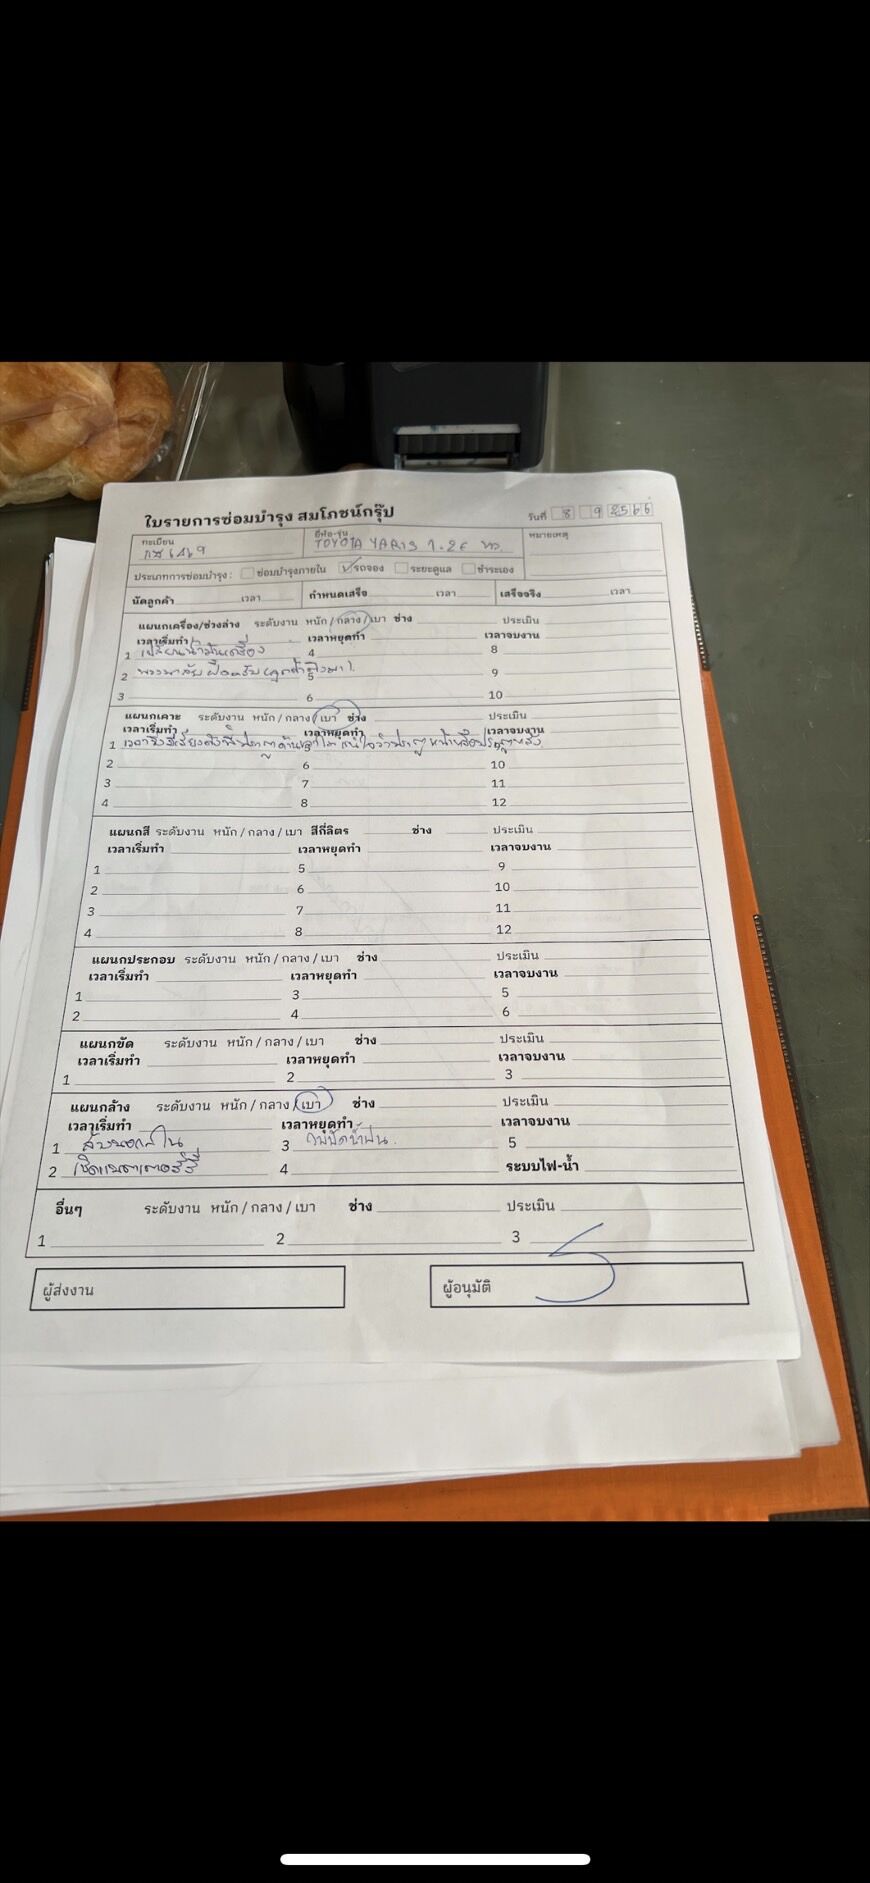 ใบรายการซ่อมบำรุง สมโภชน์กรุ๊ป
วันที่ 8 9 2566
ทะเบียน ยี่ห้อ-รุ่น TOYOTA YARIS 1.2E หมายเหตุ
ประเภทการซ่อมบำรุง : ซ่อมบำรุงภายใน รถจอง ระยะดูแล ชำระเอง
นัดลูกค้า เวลา กำหนดเสร็จ เวลา เสร็จจริง เวลา
แผนกเครื่อง/ช่วงล่าง ระดับงาน หนัก / กลาง / เบา ช่าง ประเมิน
เวลาเริ่มทำ เวลาหยุดทำ เวลาจบงาน
1 เปลี่ยนน้ำมันเครื่อง 4 8
2 5 9
3 6 10
แผนกเคาะ ระดับงาน หนัก / กลาง / เบา ช่าง ประเมิน
เวลาเริ่มทำ เวลาหยุดทำ เวลาจบงาน
1 เวลาวิ่งมีเสียงดัง
2 6 10
3 7 11
4 8 12
แผนกสี ระดับงาน หนัก / กลาง / เบา สีกี่ลิตร ช่าง ประเมิน
เวลาเริ่มทำ เวลาหยุดทำ เวลาจบงาน
1 5 9
2 6 10
3 7 11
4 8 12
แผนกประกอบ ระดับงาน หนัก / กลาง / เบา ช่าง ประเมิน
เวลาเริ่มทำ เวลาหยุดทำ เวลาจบงาน
1 3 5
2 4 6
แผนกขัด ระดับงาน หนัก / กลาง / เบา ช่าง ประเมิน
เวลาเริ่มทำ เวลาหยุดทำ เวลาจบงาน
1 2 3
แผนกล้าง ระดับงาน หนัก / กลาง / เบา ช่าง ประเมิน
เวลาเริ่มทำ เวลาหยุดทำ เวลาจบงาน
1 ล้างนอกใน 3 ใบปัดน้ำฝน 5
2 เช็คแบตเตอรี่ 4 ระบบไฟ-น้ำ
อื่นๆ ระดับงาน หนัก / กลาง / เบา ช่าง ประเมิน
1 2 3
ผู้ส่งงาน ผู้อนุมัติ